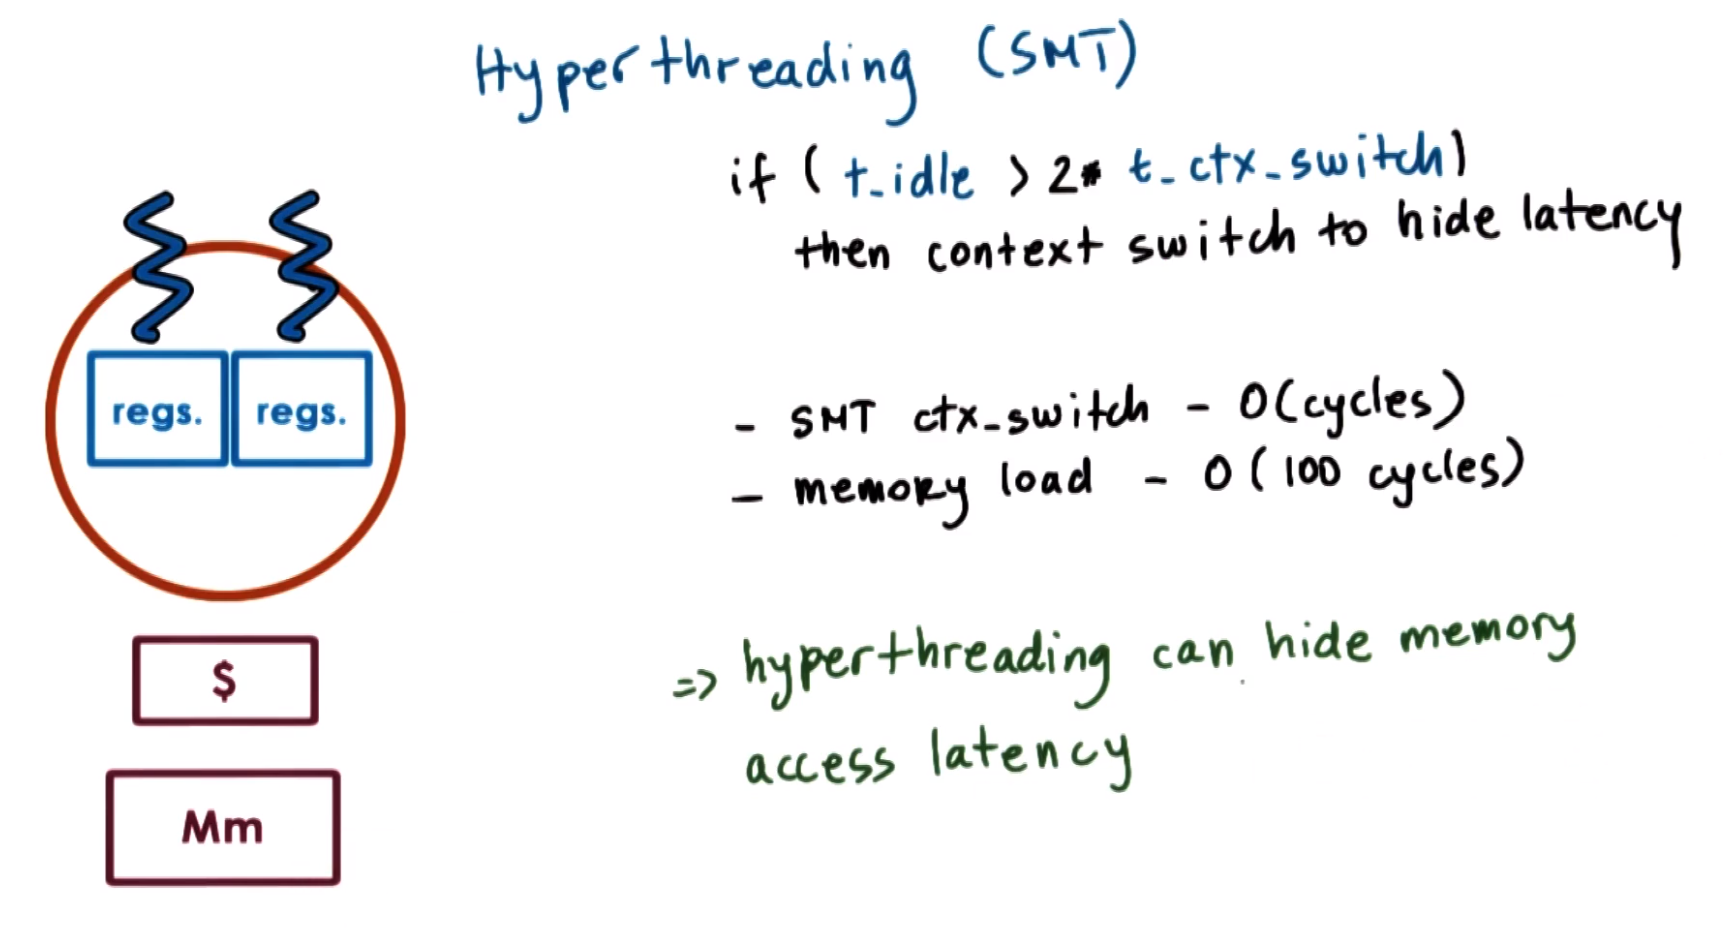 Hyperthreading (SMT)
if (t_idle > 2* t_ctx_switch)
then context switch to hide latency
regs. regs.
- SMT ctx_switch - O(cycles)
- memory load - O(100 cycles)
=> hyperthreading can hide memory
access latency
$
Mm